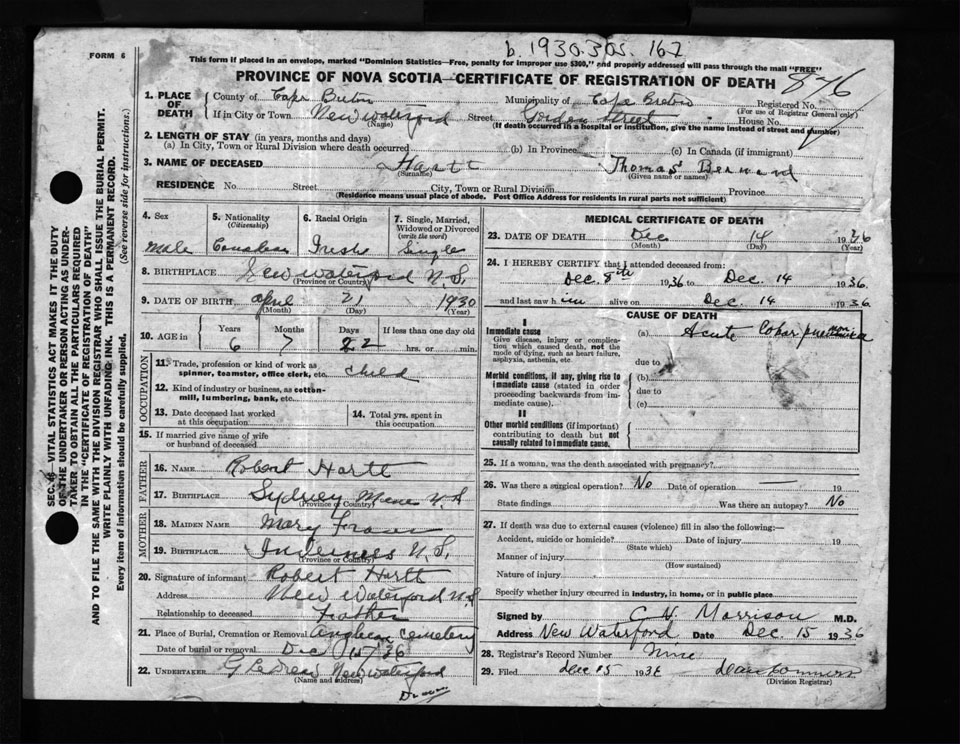 b. 1930.305.162
FORM 6
This form if placed in an envelope, marked "Dominion Statistics—Free, penalty for improper use $300," and properly addressed will pass through the mail "FREE"
PROVINCE OF NOVA SCOTIA—CERTIFICATE OF REGISTRATION OF DEATH
876
1. PLACE OF DEATH
County of Cape Breton Municipality of Cape Breton Registered No.
(For use of Registrar General only)
If in City or Town New Waterford Street Gordon Street House No.
(Name) (If death occurred in a hospital or institution, give the name instead of street and number)
2. LENGTH OF STAY (in years, months and days)
(a) In City, Town or Rural Division where death occurred (b) In Province (c) In Canada (if immigrant)
3. NAME OF DECEASED Hartt Thomas Bernard
(Surname) (Given name or names)
RESIDENCE No. Street City, Town or Rural Division Province
(Residence means usual place of abode. Post Office Address for residents in rural parts not sufficient)
4. Sex
Male
5. Nationality
(Citizenship)
Canadian
6. Racial Origin
Irish
7. Single, Married, Widowed or Divorced
(write the word)
Single
8. BIRTHPLACE New Waterford N.S.
(Province or Country)
9. DATE OF BIRTH April 21 1930
(Month) (Day) (Year)
10. AGE in
Years Months Days If less than one day old
6 7 22 hrs. or min.
OCCUPATION
11. Trade, profession or kind of work as spinner, teamster, office clerk, etc. child
12. Kind of industry or business, as cotton-mill, lumbering, bank, etc.
13. Date deceased last worked at this occupation
14. Total yrs. spent in this occupation
15. If married give name of wife or husband of deceased
FATHER
16. NAME Robert Hartt
17. BIRTHPLACE Sydney Mines N.S
(Province or Country)
MOTHER
18. MAIDEN NAME Mary
19. BIRTHPLACE Inverness N.S.
(Province or Country)
20. Signature of informant Robert Hartt
Address New Waterford N.S
Relationship to deceased Father
21. Place of Burial, Cremation or Removal Anglican Cemetery
Date of burial or removal Dec 15/36
22. UNDERTAKER New Waterford
(Name and address)
MEDICAL CERTIFICATE OF DEATH
23. DATE OF DEATH Dec 14 1936
(Month) (Day) (Year)
24. I HEREBY CERTIFY that I attended deceased from:
Dec. 8th 1936 to Dec. 14 1936.
and last saw him alive on Dec. 14 1936.
CAUSE OF DEATH
I
Immediate cause
Give disease, injury or complication which caused death, not the mode of dying, such as heart failure, asphyxia, asthenia, etc.
(a) Acute Lobar pneumonia
due to
Morbid conditions, if any, giving rise to immediate cause (stated in order proceeding backwards from immediate cause).
(b)
due to
(c)
II
Other morbid conditions (if important) contributing to death but not causally related to immediate cause.
25. If a woman, was the death associated with pregnancy?
26. Was there a surgical operation? No Date of operation — 19
State findings. Was there an autopsy? No
27. If death was due to external causes (violence) fill in also the following:—
Accident, suicide or homicide? Date of injury 19
(State which)
Manner of injury
(How sustained)
Nature of injury
Specify whether injury occurred in industry, in home, or in public place
Signed by C. H. Morrison M.D.
Address New Waterford Date Dec. 15 1936
28. Registrar's Record Number
29. Filed Dec 15 1936
(Division Registrar)
SEC. 16—VITAL STATISTICS ACT MAKES IT THE DUTY OF THE UNDERTAKER OR PERSON ACTING AS UNDERTAKER TO OBTAIN ALL THE PARTICULARS REQUIRED IN THE "CERTIFICATE OF REGISTRATION OF DEATH" AND TO FILE THE SAME WITH THE DIVISION REGISTRAR WHO SHALL ISSUE THE BURIAL PERMIT.
WRITE PLAINLY WITH UNFADING INK. THIS IS A PERMANENT RECORD.
Every item of information should be carefully supplied. (See reverse side for instructions.)